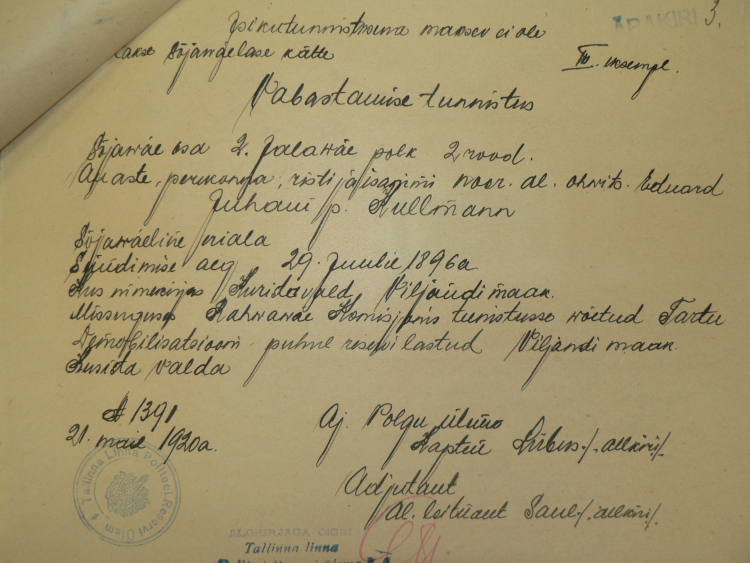 Isikutunnistusena maksev ei ole
ÄRAKIRI 3.
sõjawäelase kätte
III. eksempl.
Vabastamise tunnistus
Sõjawäe osa 2. Jalawäe polk 2 rood.
Auaste, perekonna, risti ja isanimi noor. al. ohwits. Eduard
Juhani p. Kullmann
Sõjawäeline eriala
Sündimise aeg 29. Juulie 1896a.
Kus nimekirjas wald Viljandi maak.
Missuguses Rahwawäe Komisjonis teenistusse wõetud Tartu
Demobilisatsiooni puhul reservi lastud Viljandi maak.
Kusida valda
№ 1391
21. mail 1920a.
Aj. Polgu ülema
Kapten /-allkiri/-
Adjutant
Al. leitnant Saul /-allkiri/-
Tallinna Linna Politsei Reservi Ülem
ALGKIRJAGA ÕIGE:
Tallinna linna